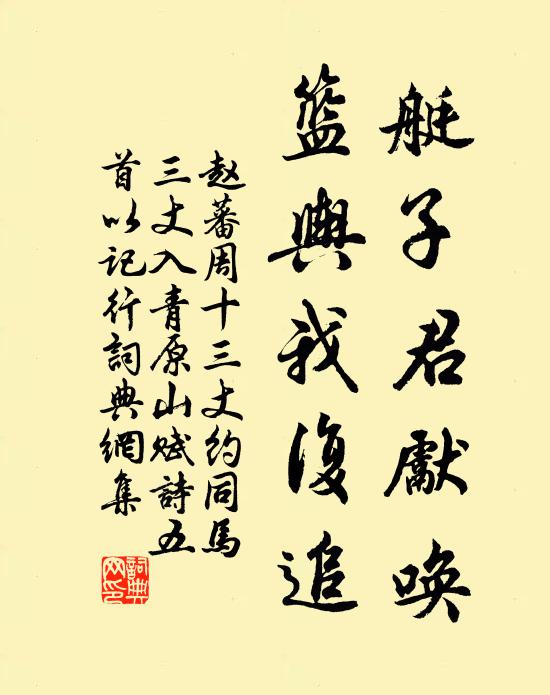 艇子君獻唤
籃輿我復追
赵蕃周十三丈約同馬
三丈入青原山赋詩五
首以记行詞典網集
詞典
网印